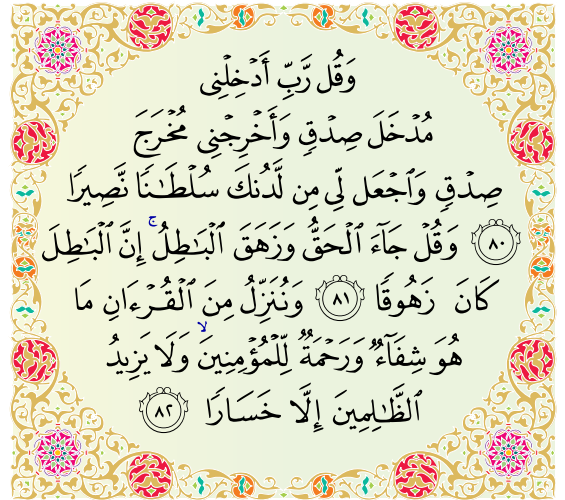 وَقُل رَّبِّ أَدْخِلْنِى
مُدْخَلَ صِدْقٍ وَأَخْرِجْنِى مُخْرَجَ
صِدْقٍ وَٱجْعَل لِّى مِن لَّدُنكَ سُلْطَـٰنًا نَّصِيرًا
﴿٨٠﴾ وَقُلْ جَآءَ ٱلْحَقُّ وَزَهَقَ ٱلْبَـٰطِلُ ۚ إِنَّ ٱلْبَـٰطِلَ
كَانَ زَهُوقًا ﴿٨١﴾ وَنُنَزِّلُ مِنَ ٱلْقُرْءَانِ مَا
هُوَ شِفَآءٌ وَرَحْمَةٌ لِّلْمُؤْمِنِينَ ۙ وَلَا يَزِيدُ
ٱلظَّـٰلِمِينَ إِلَّا خَسَارًا ﴿٨٢﴾